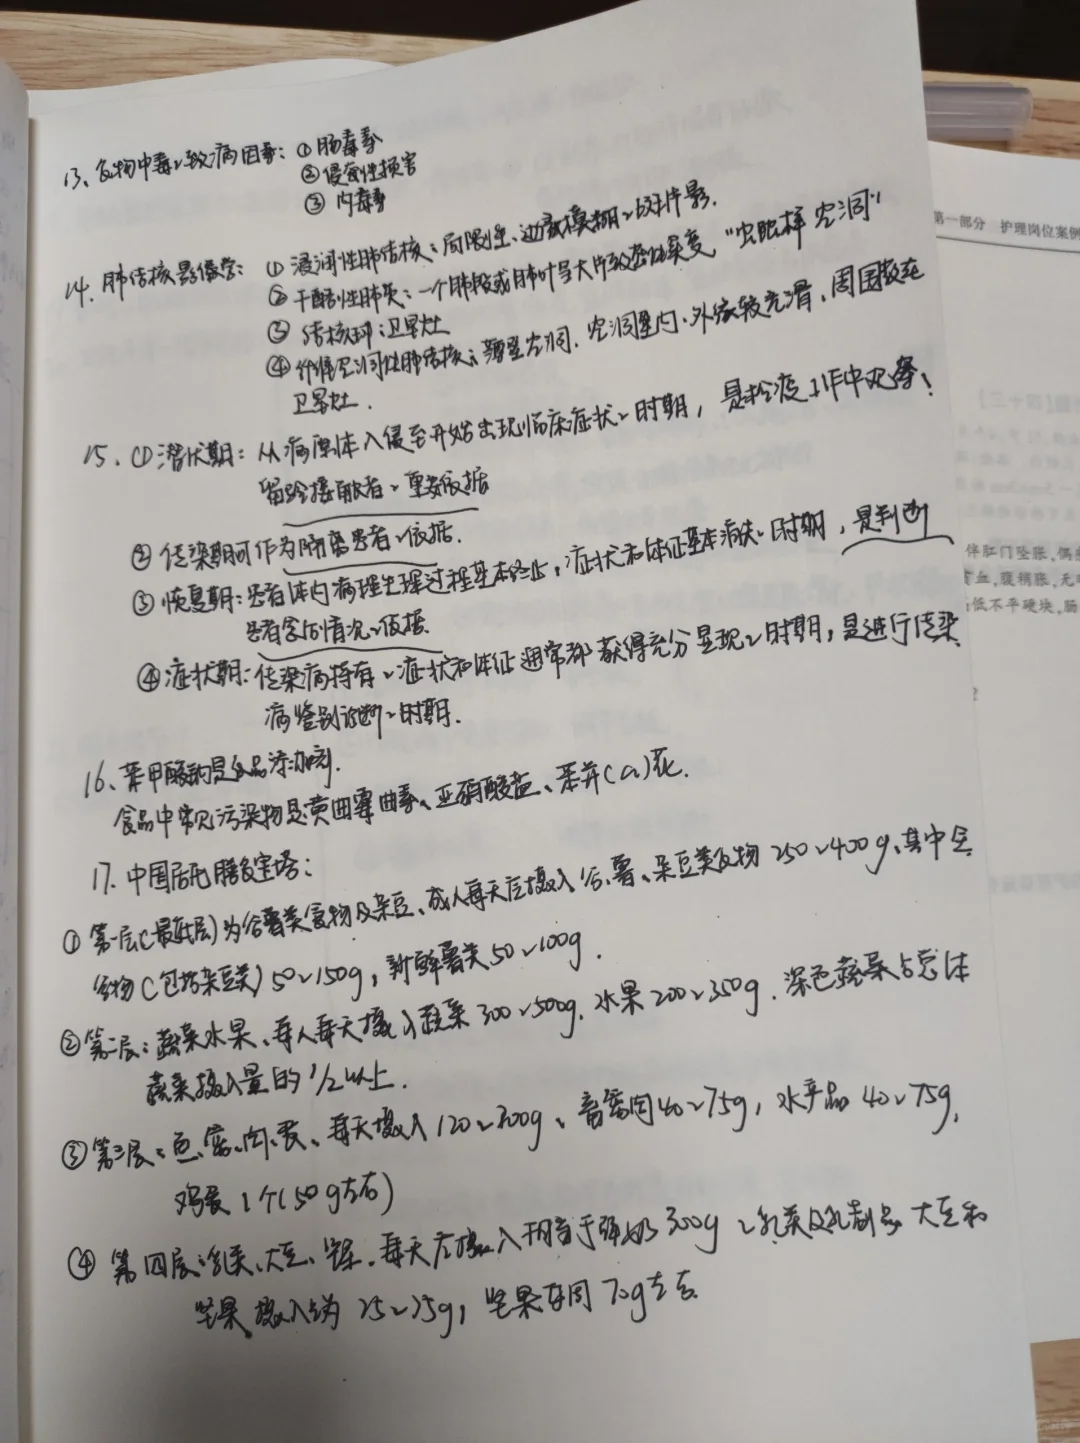 13、食物中毒~致病因素：① 肠毒素
② 侵袭性损害
③ 内毒素
14、肺结核影像学：① 浸润性肺结核：局限性、边缘模糊~斑片影.
② 干酪性肺炎：一个肺段或肺叶呈大片致密性实变，“虫蚀样空洞”
③ 结核球：卫星灶
④ 纤维空洞性肺结核：薄壁空洞．空洞壁内、外缘较光滑，周围散在
卫星灶．
15、① 潜伏期：从病原体入侵至开始出现临床症状~时期，是检疫工作中观察、
留验接触者~重要依据
② 传染期可作为隔离患者~依据.
③ 恢复期：患者体内病理生理过程基本终止，症状和体征基本消失~时期，是判断
患者害的情况~依据.
④ 症状期：传染病特有~症状和体征通常都获得充分显现~时期，是进行传染
病鉴别诊断~时期.
16、苯甲酸钠是食品添加剂.
食品中常见污染物是黄曲霉曲素、亚硝酸盐、苯并(a)芘.
17. 中国居民膳食宝塔：
① 第一层(最底层)为谷薯类食物及杂豆、成人每天应摄入谷、薯、杂豆类食物 250~400g、其中全
谷物(包括杂豆类) 50~150g，新鲜薯类 50~100g．
② 第二层：蔬菜水果、每人每天摄入蔬菜 300~500g．水果 200~350g．深色蔬菜占总体
蔬菜摄入量的 1/2 以上．
③ 第三层：鱼、禽、肉、蛋、每天摄入 120~200g、畜禽肉 40~75g，水产品 40~75g，
鸡蛋 1个(50g左右)
④ 第四层：乳类、大豆、坚果．每天应摄入相当于鲜奶 300g~乳类及乳制品 大豆和
坚果 摄入约为 25~35g，坚果每周 70g左右
第一部分 护理岗位案例
【四十二】
伴肛门坠胀，偶
血，腹稍胀，无
低不平硬块，肠